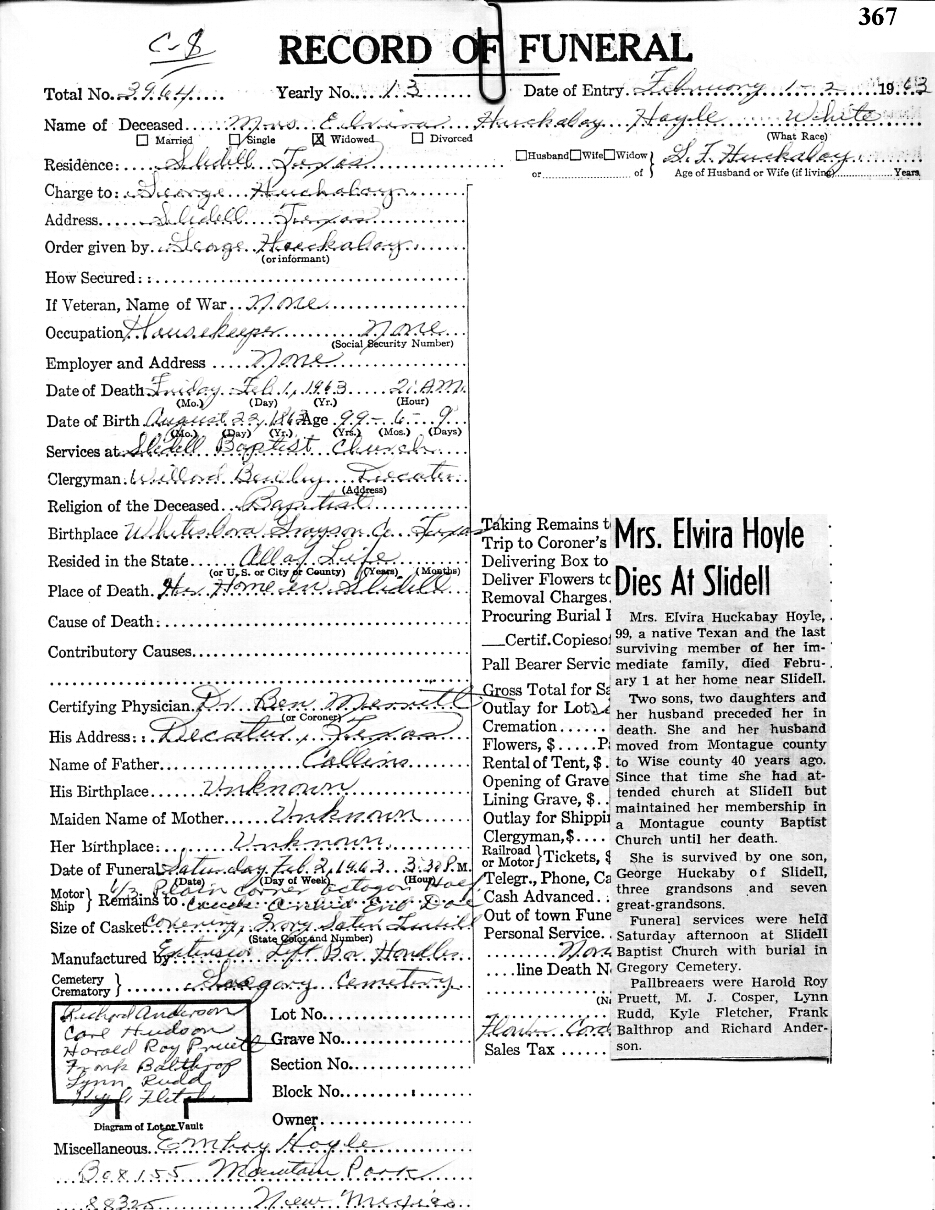 367
C-8
RECORD OF FUNERAL
Total No. 3964 Yearly No. 13 Date of Entry February 1-2 1963
Name of Deceased Mrs. Elvira Huckabay Hoyle White
(What Race)
Married Single Widowed Divorced
Residence: Slidell Texas Husband Wife Widow
or of
Age of Husband or Wife (if living) Years
Charge to: George Huckabay
Address Slidell Texas
Order given by George Huckabay
(or informant)
How Secured:
If Veteran, Name of War None
Occupation Housekeeper None
(Social Security Number)
Employer and Address None
Date of Death Friday Feb 1, 1963 2 A.M.
(Mo.) (Day) (Yr.) (Hour)
Date of Birth August 22, 1863 Age 99-6-9
(Mo.) (Day) (Yr.) (Yrs.) (Mos.) (Days)
Services at Slidell Baptist Church
Clergyman Decatur
(Address)
Religion of the Deceased Baptist
Birthplace Whitesboro Grayson Co Texas
Resided in the State All of Life
(or U. S. or City or County) (Years) (Months)
Place of Death Her Home in Slidell
Cause of Death:
Contributory Causes
Certifying Physician Dr. Ben Merritt
(or Coroner)
His Address: Decatur, Texas
Name of Father Collins
His Birthplace Unknown
Maiden Name of Mother Unknown
Her Birthplace: Unknown
Date of Funeral Saturday Feb. 2, 1963 3:30 P.M.
(Date) (Day of Week) (Hour)
Motor
Ship } Remains to
Size of Casket Ivory Satin
(State Color and Number)
Manufactured by
Cemetery
Crematory } Gregory Cemetery
Richard Anderson
Carl Hudson
Harold Roy Pruett
Frank Balthrop
Lynn Rudd
Kyle Fletch
Lot No.
Grave No.
Section No.
Block No.
Owner
Diagram of Lot or Vault
Miscellaneous Emhoy Hoyle
Box 155 Mountain Park
88325 New Mexico
Taking Remains t
Trip to Coroner's
Delivering Box to
Deliver Flowers to
Removal Charges
Procuring Burial
Certif. Copies of
Pall Bearer Servic
Gross Total for Sa
Outlay for Lot
Cremation
Flowers, $ P
Rental of Tent, $
Opening of Grave
Lining Grave, $
Outlay for Shippi
Clergyman, $
Railroad
or Motor } Tickets, $
Telegr., Phone, Ca
Cash Advanced
Out of town Fune
Personal Service
line Death N
(N
Sales Tax
Mrs. Elvira Hoyle
Dies At Slidell
Mrs. Elvira Huckabay Hoyle,
99, a native Texan and the last
surviving member of her im-
mediate family, died Febru-
ary 1 at her home near Slidell.
Two sons, two daughters and
her husband preceded her in
death. She and her husband
moved from Montague county
to Wise county 40 years ago.
Since that time she had at-
tended church at Slidell but
maintained her membership in
a Montague county Baptist
Church until her death.
She is survived by one son,
George Huckaby of Slidell,
three grandsons and seven
great-grandsons.
Funeral services were held
Saturday afternoon at Slidell
Baptist Church with burial in
Gregory Cemetery.
Pallbreaers were Harold Roy
Pruett, M. J. Cosper, Lynn
Rudd, Kyle Fletcher, Frank
Balthrop and Richard Ander-
son.